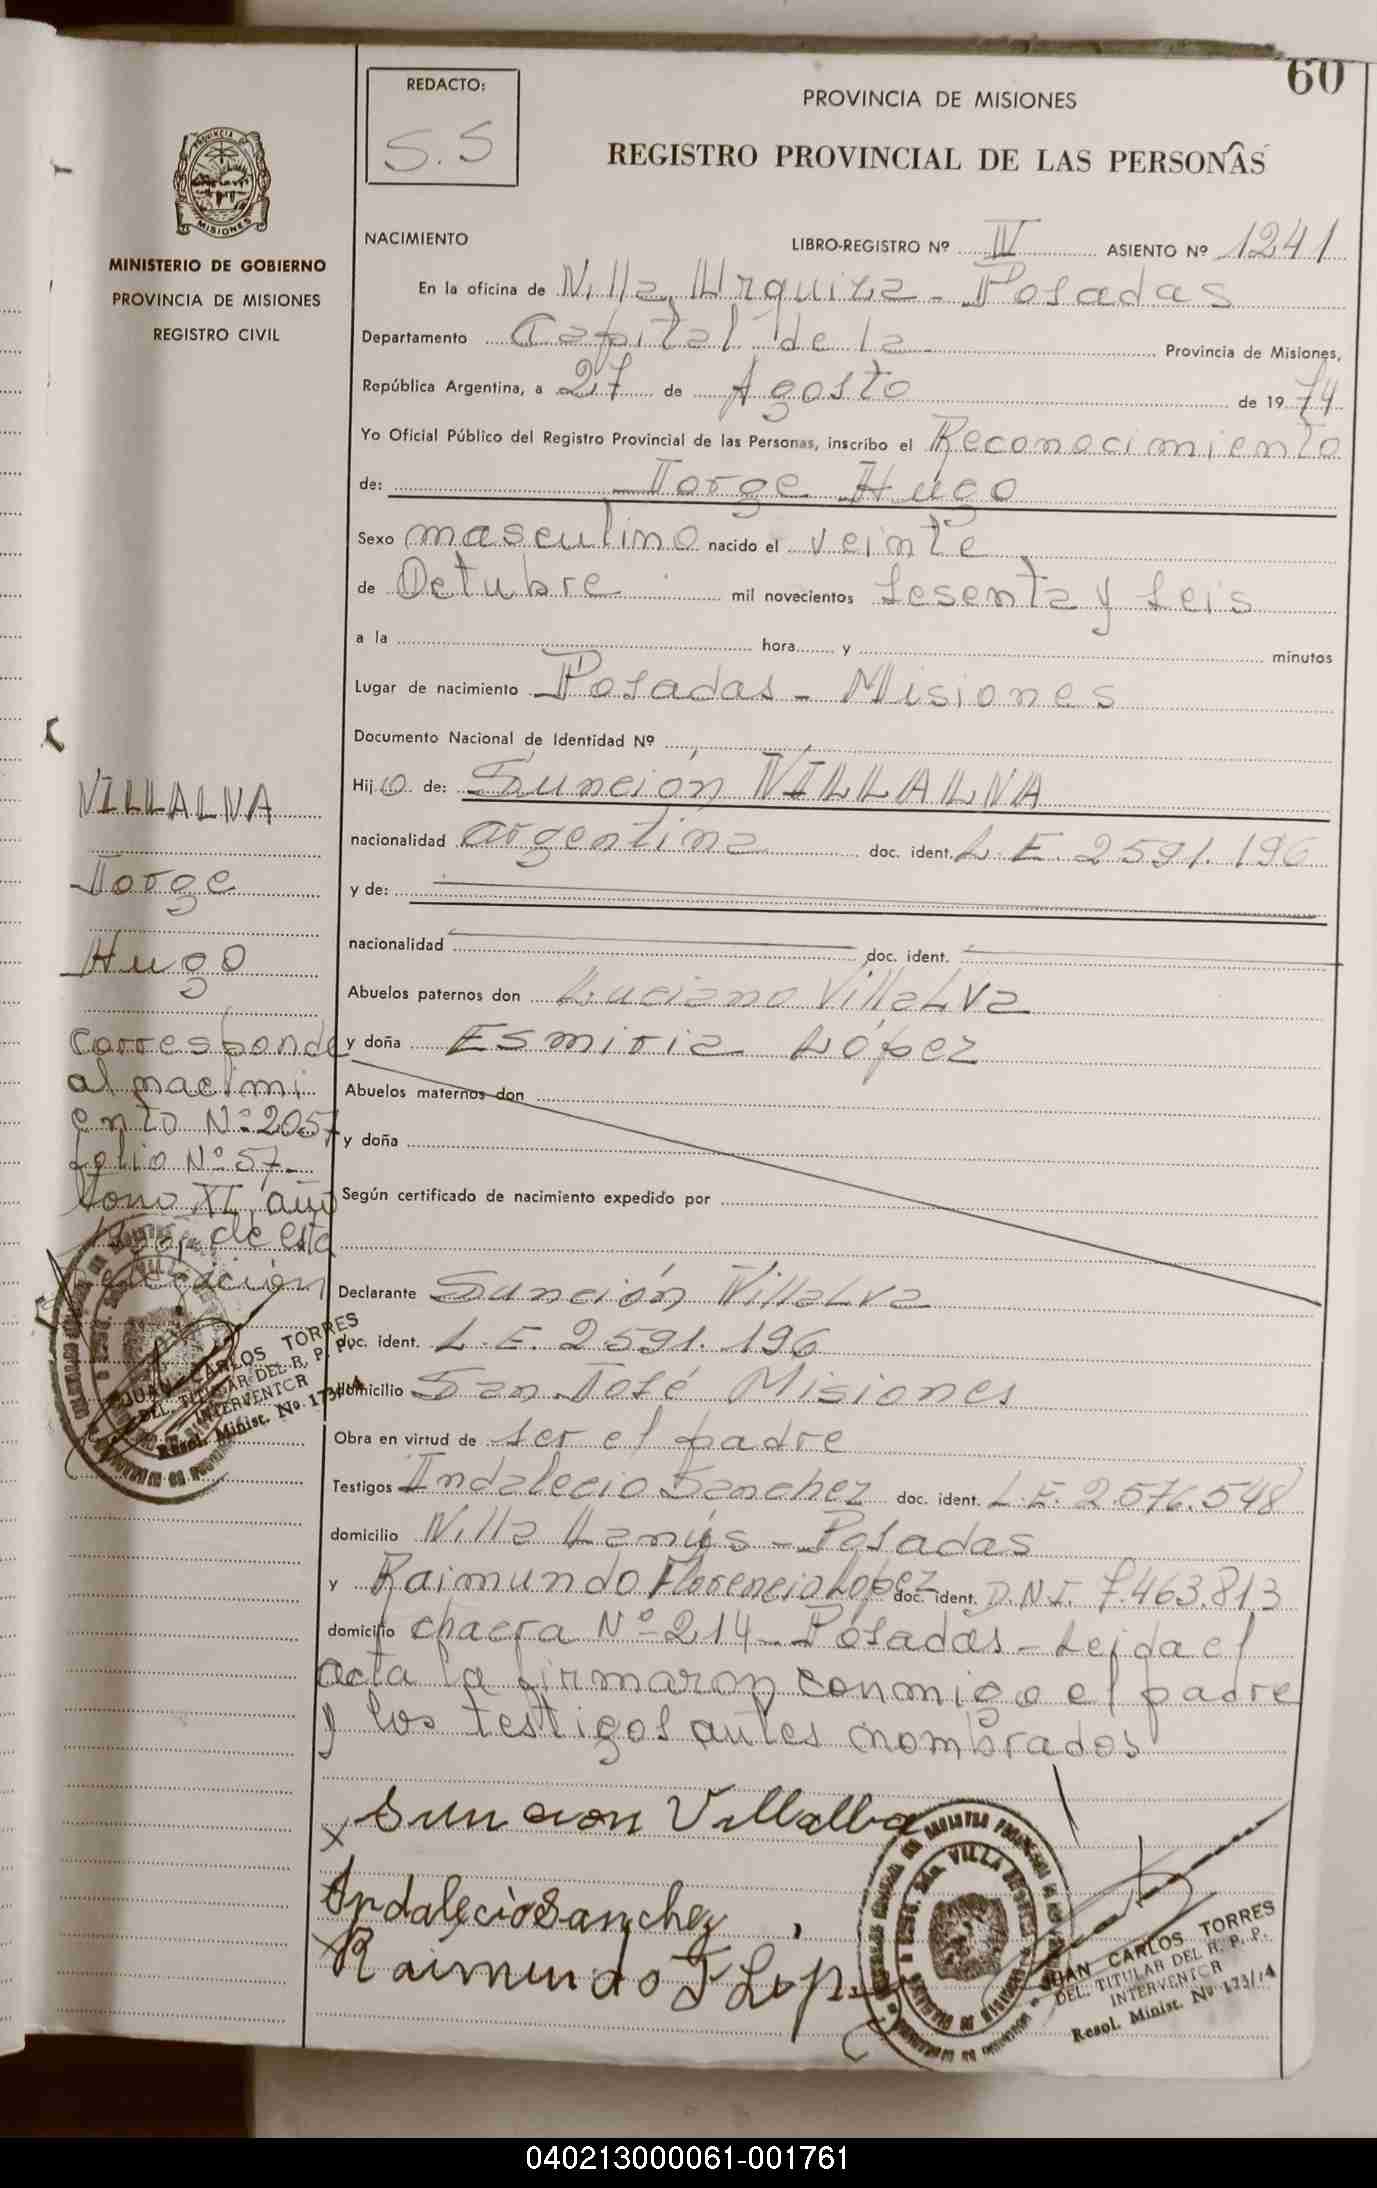 60
REDACTO:
S.S
PROVINCIA DE MISIONES
REGISTRO PROVINCIAL DE LAS PERSONAS
PROVINCIA DE
MISIONES
MINISTERIO DE GOBIERNO
PROVINCIA DE MISIONES
REGISTRO CIVIL
NACIMIENTO LIBRO-REGISTRO Nº IV ASIENTO Nº 1241
En la oficina de Villa Urquiza - Posadas
Departamento Capital de la Provincia de Misiones,
República Argentina, a 27 de Agosto de 1974
Yo Oficial Público del Registro Provincial de las Personas, inscribo el Reconocimiento
de: Jorge Hugo
Sexo masculino nacido el veinte
de Octubre mil novecientos sesenta y seis
a la hora y minutos
Lugar de nacimiento Posadas - Misiones
Documento Nacional de Identidad Nº
Hijo de: Sunción VILLALVA
nacionalidad argentina doc. ident. L.E. 2591.196
y de:
nacionalidad doc. ident.
Abuelos paternos don Luciano Villalva
y doña Esmiria López
Abuelos maternos don
y doña
Según certificado de nacimiento expedido por
Declarante Sunción Villalva
doc. ident. L.E. 2591.196
domicilio San José Misiones
Obra en virtud de ser el padre
Testigos Indalecio Sanchez doc. ident. L.E. 2.576.548
domicilio Villa Lanús - Posadas
y Raimundo Florencio Lopez doc. ident. D.N.I. 7.463.813
domicilio chacra Nº 214 - Posadas - Leida el
acta la firmaron conmigo el padre
y los testigos antes nombrados
VILLALVA
Jorge
Hugo
corresponde
al nacimi
ento Nº 2057
folio Nº 57 -
tomo XI, año
de esta
JUAN CARLOS TORRES
DEL. TITULAR DEL R. P. P.
INTERVENTOR
Resol. Minist. No 173/74
Suncion Villalba
Indalecio Sanchez
Raimundo F Lop
VILLA
JUAN CARLOS TORRES
DEL. TITULAR DEL R. P. P.
INTERVENTOR
Resol. Minist. No 173/74
040213000061-001761